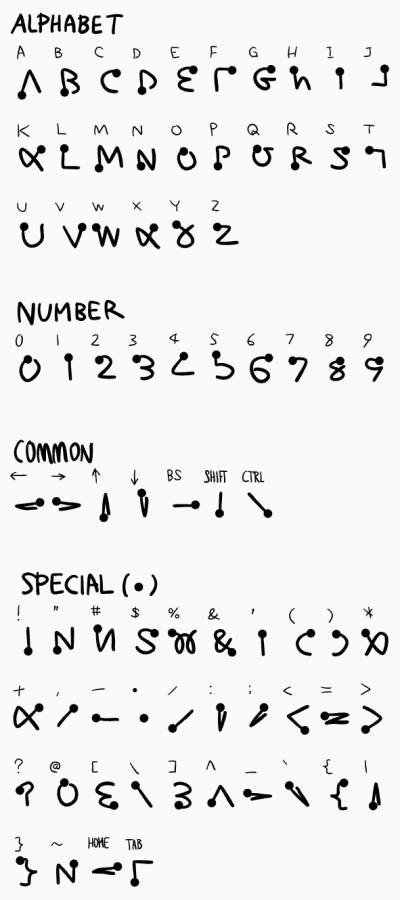 ALPHABET
A B C D E F G H I J
K L M N O P Q R S T
U V W X Y Z
NUMBER
0 1 2 3 4 5 6 7 8 9
COMMON
← → ↑ ↓ BS SHIFT CTRL
SPECIAL (•)
! " # $ % & ' ( ) *
+ , - • / : ; < = >
? @ [ \ ] ^ _ ` { |
} ~ HOME TAB